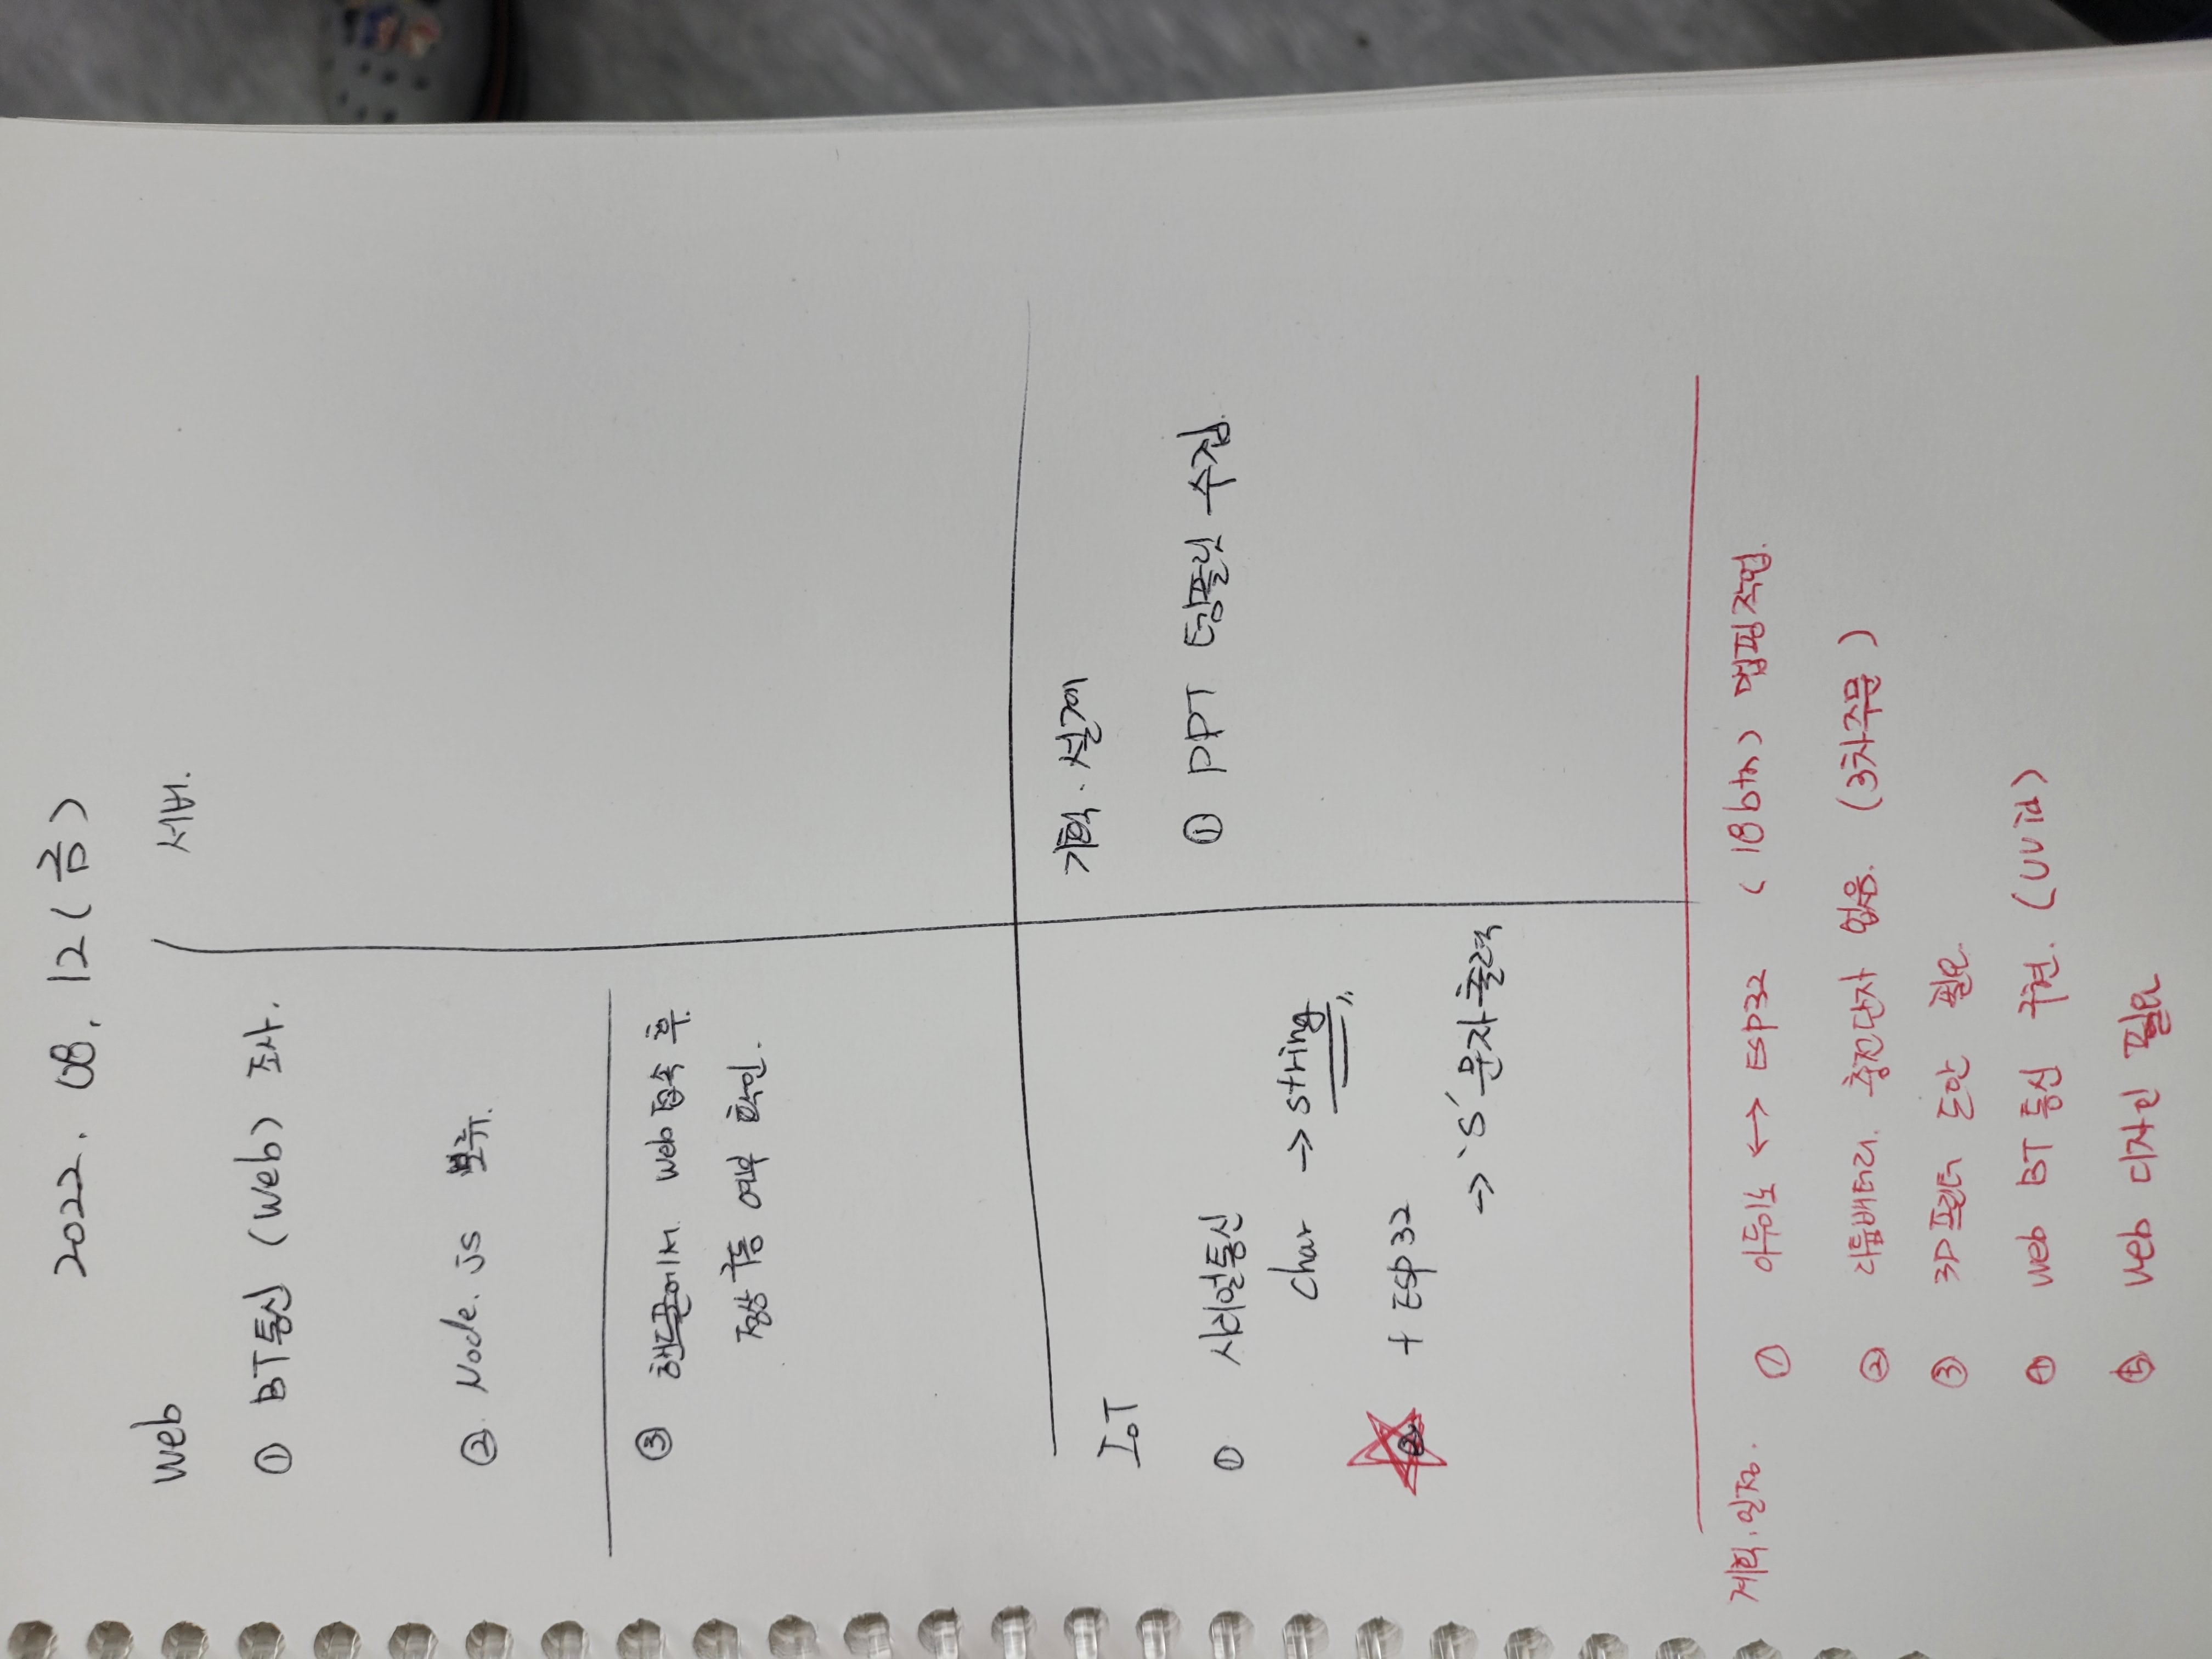 2022. 08. 12(금)
Web
① BT통신 (Web) 조사.
② Node.js 보류.
③ 핸드폰에서 web 접속 후
정상 구동 여부 확인.
서버.
IoT
① 시리얼통신
char → string
② + ESP32
→ 'S' 문자 출력
기획. 설계
① PPT 템플릿 수집.
계획. 일정.
① 아두이노 ↔ ESP32 (18btn) 맵핑작업.
② 리튬배터리. 충전단자 없음. (3차주문)
③ 3D프린터 도안 필요.
④ web BT 통신 구현. (UUid)
⑤ web 디자인 필요